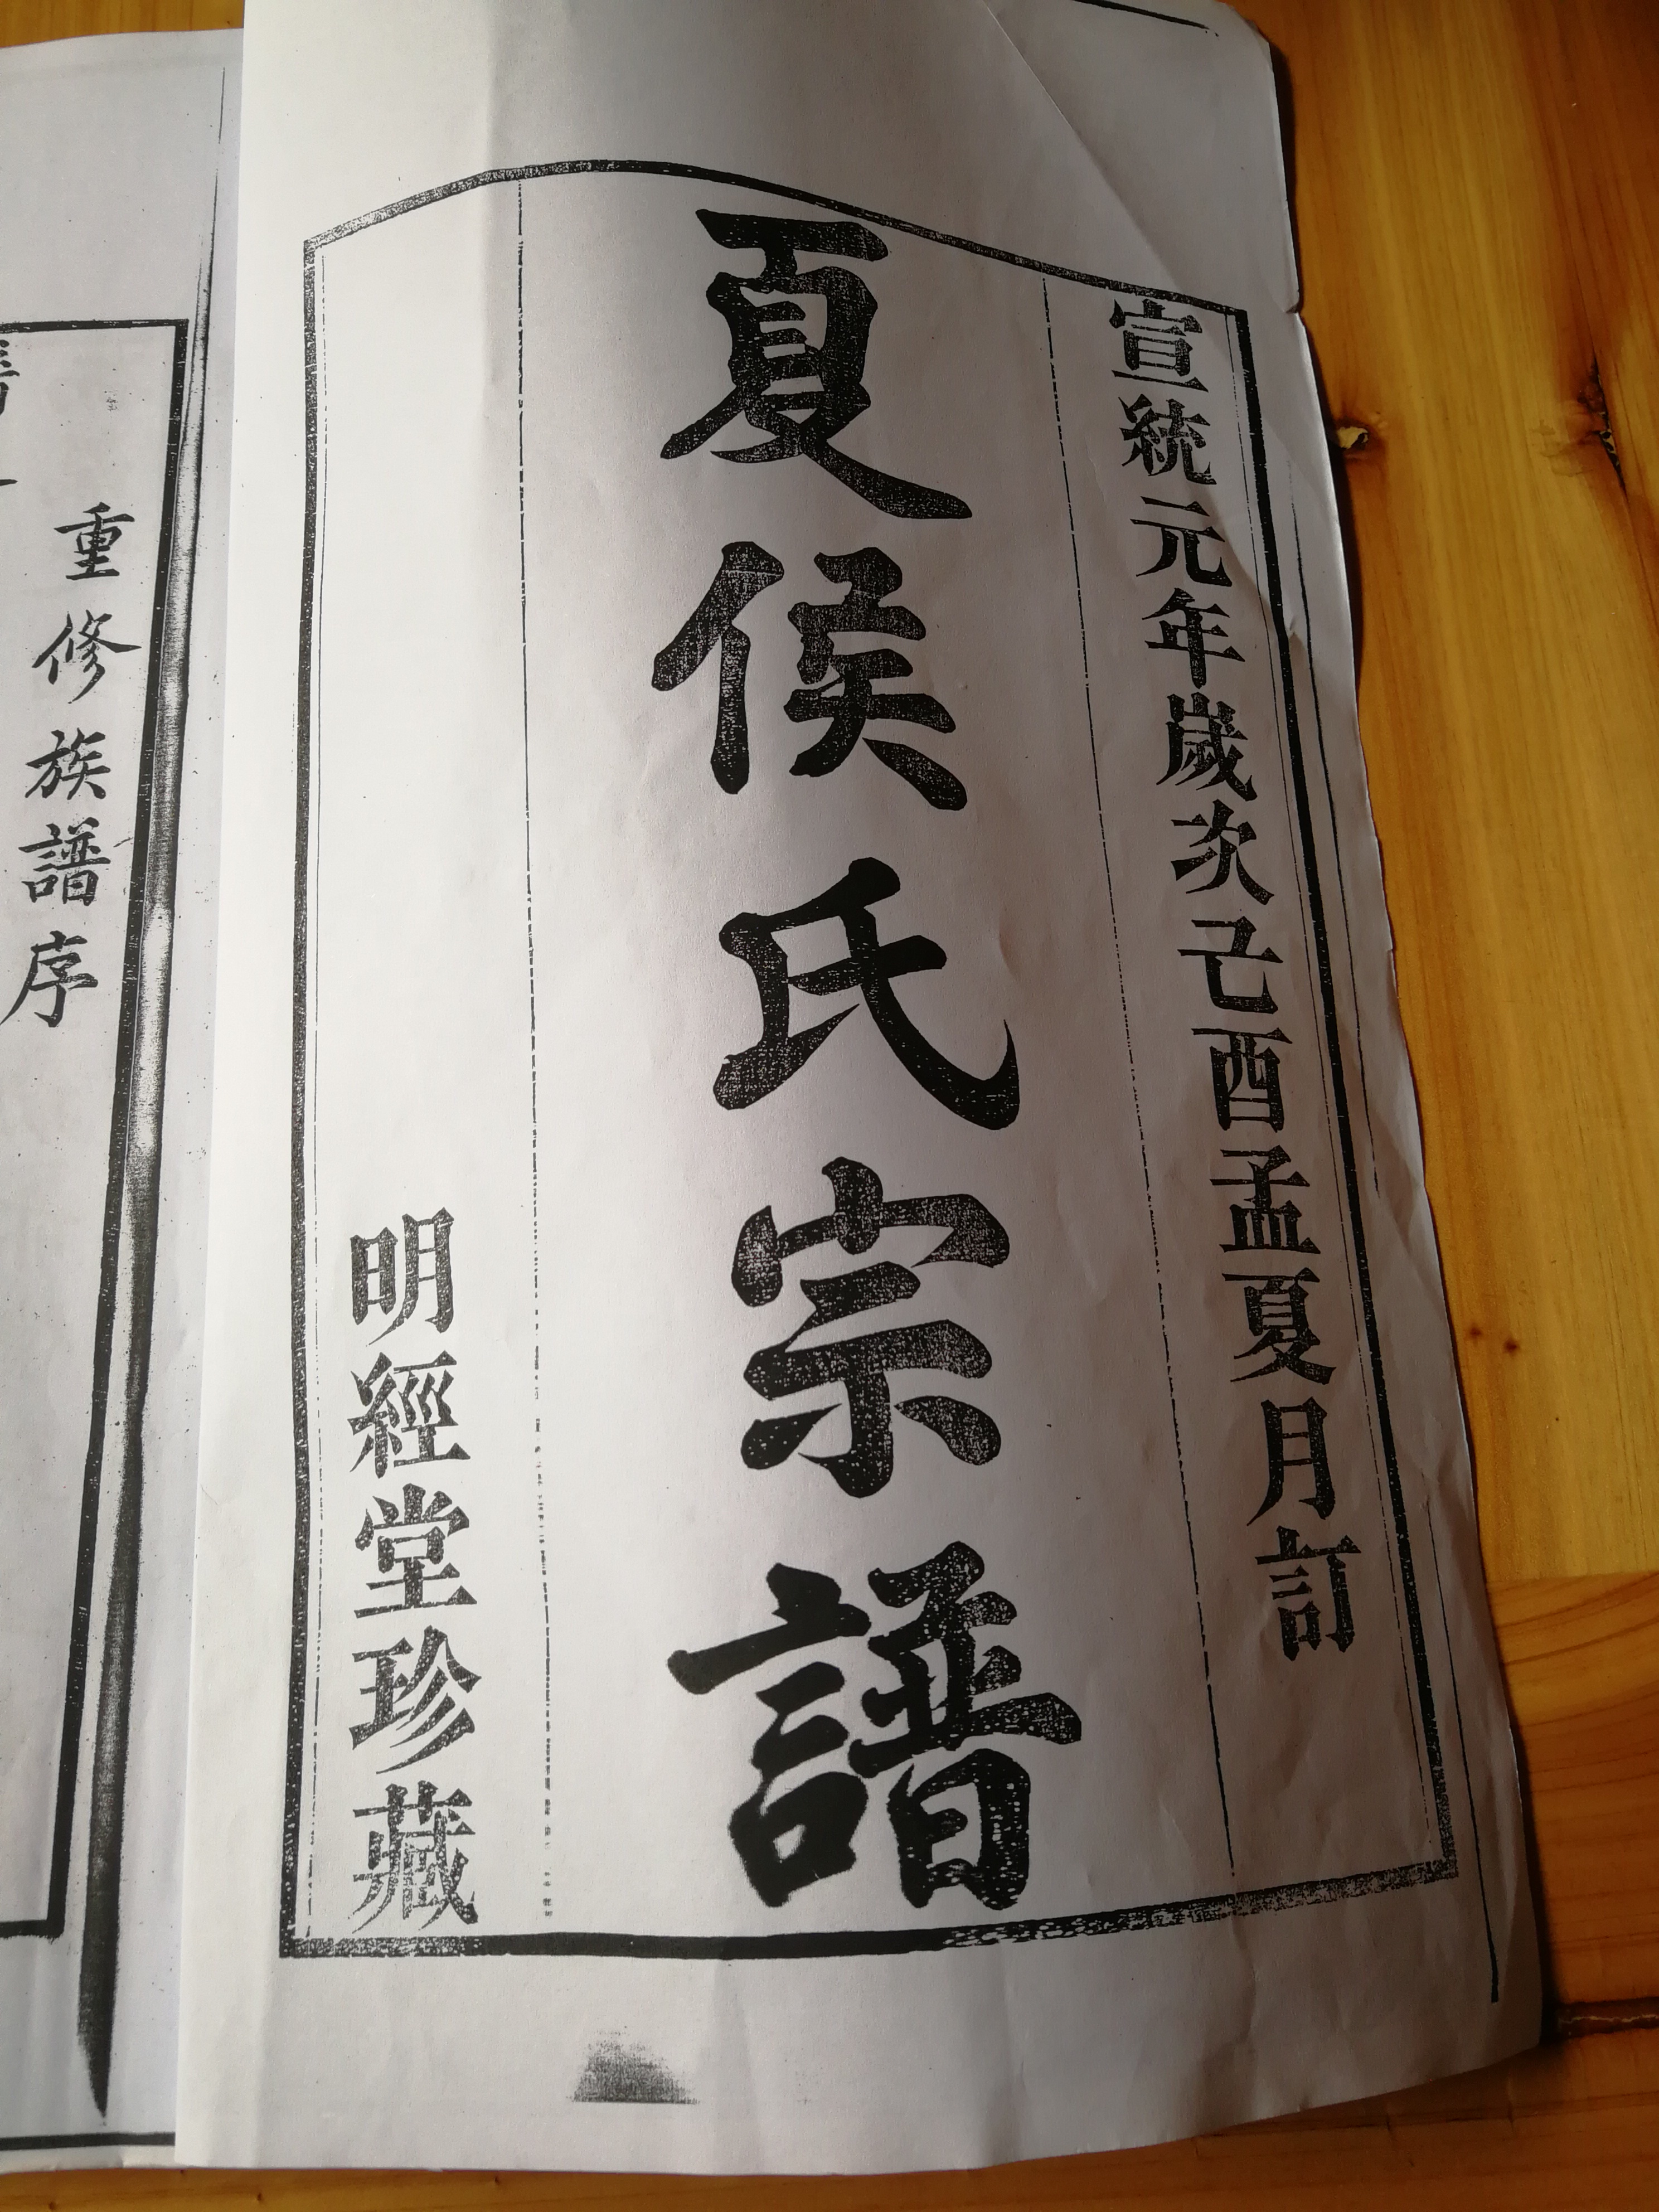 宣統元年歲次己酉孟夏月訂
夏侯氏宗譜
明經堂珍藏
重修族譜序